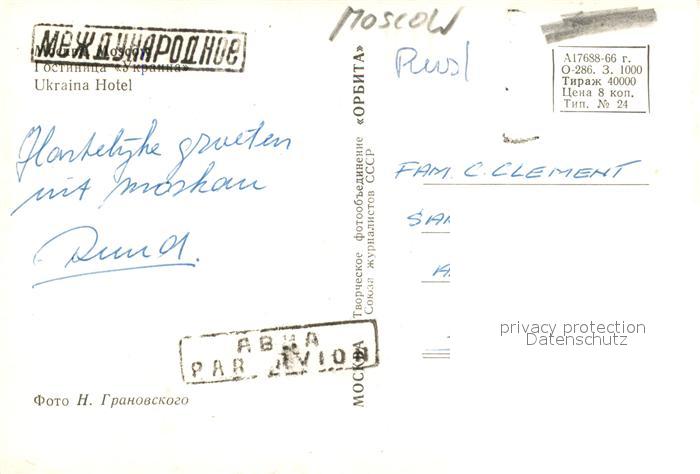 МЕЖДУНАРОДНОЕ
Москва. Moscow
Гостиница «Украина»
Ukraina Hotel
Hartelijke groeten
uit Moskau
Ruud.
АВИА
PAR AVION
Фото Н. Грановского
МОСКВА Творческое фотообъединение «ОРБИТА»
Союза журналистов СССР
MOSCOW
Rusl
А17688-66 г.
О-286. З. 1000
Тираж 40000
Цена 8 коп.
Тип. № 24
FAM. C. CLEMENT
SA
A
privacy protection
Datenschutz